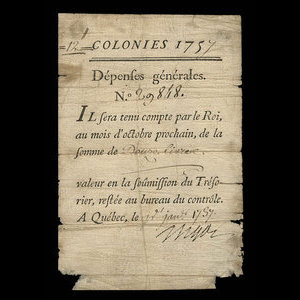 = 12 =
COLONIES 1757
Dépenses générales.
N.º 29848.
IL sera tenu compte par le Roi,
au mois d'octobre prochain, de la
somme de Douze Livres
valeur en la soûmission du Trésorier,
rier, restée au bureau du contrôle.
A Québec, le 1757